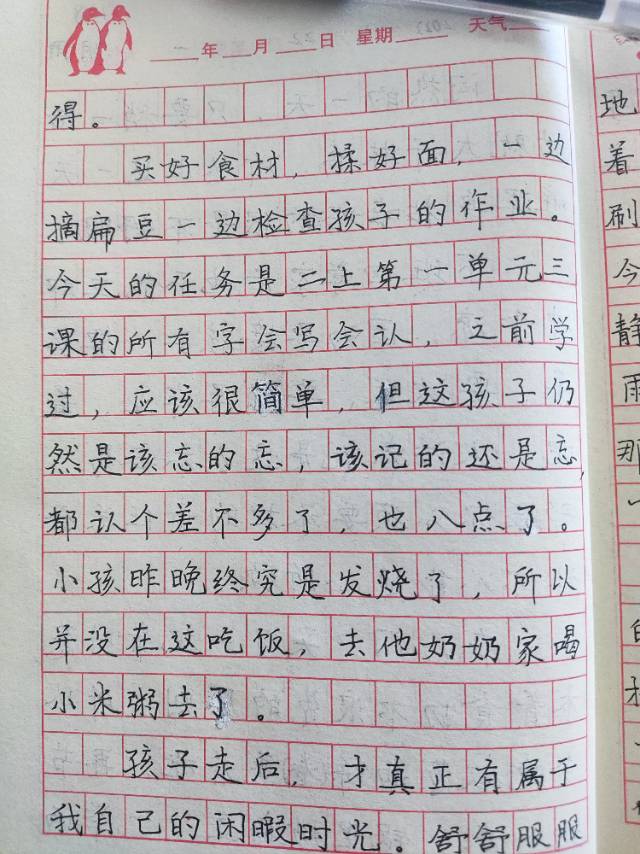 年 月 日 星期 天气
得。
买好食材，揉好面，一边
摘扁豆一边检查孩子的作业。
今天的任务是二上第一单元三
课的所有字会写会认，之前学
过，应该很简单，但这孩子仍
然是该忘的忘，该记的还是忘，
都认个差不多了，也八点了。
小孩昨晚终究是发烧了，所以
并没在这吃饭，去他奶奶家喝
小米粥去了。
孩子走后，才真正有属于
我自己的闲暇时光。舒舒服服
地
着
刷
今
静
雨
那